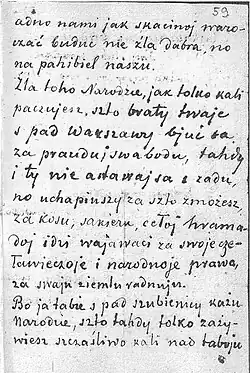 59
adno nami jak skacinoj naro-
czać budut nie zla dabra, no
na pahibiel naszu.
Dla toho Narodzie, jak tolko kali
paczujesz, szto braty twaje
s pad Warszawy bjuć sa
za praudu j swabodu, tahdy
i ty nie astawajsa z zadu,
no uchapiuszy za szto zmożesz
za kosu, sakieru, cełoj hrama-
doj idzi wajawaci za swoje cze-
ławieczoje i narodnoje prawa,
za swaju ziemlu radnuju.
Bo ja tabie s pad szubienicy każu
Narodzie, szto tahdy tolko zaży-
wiesz szczaśliwo kali nad taboju